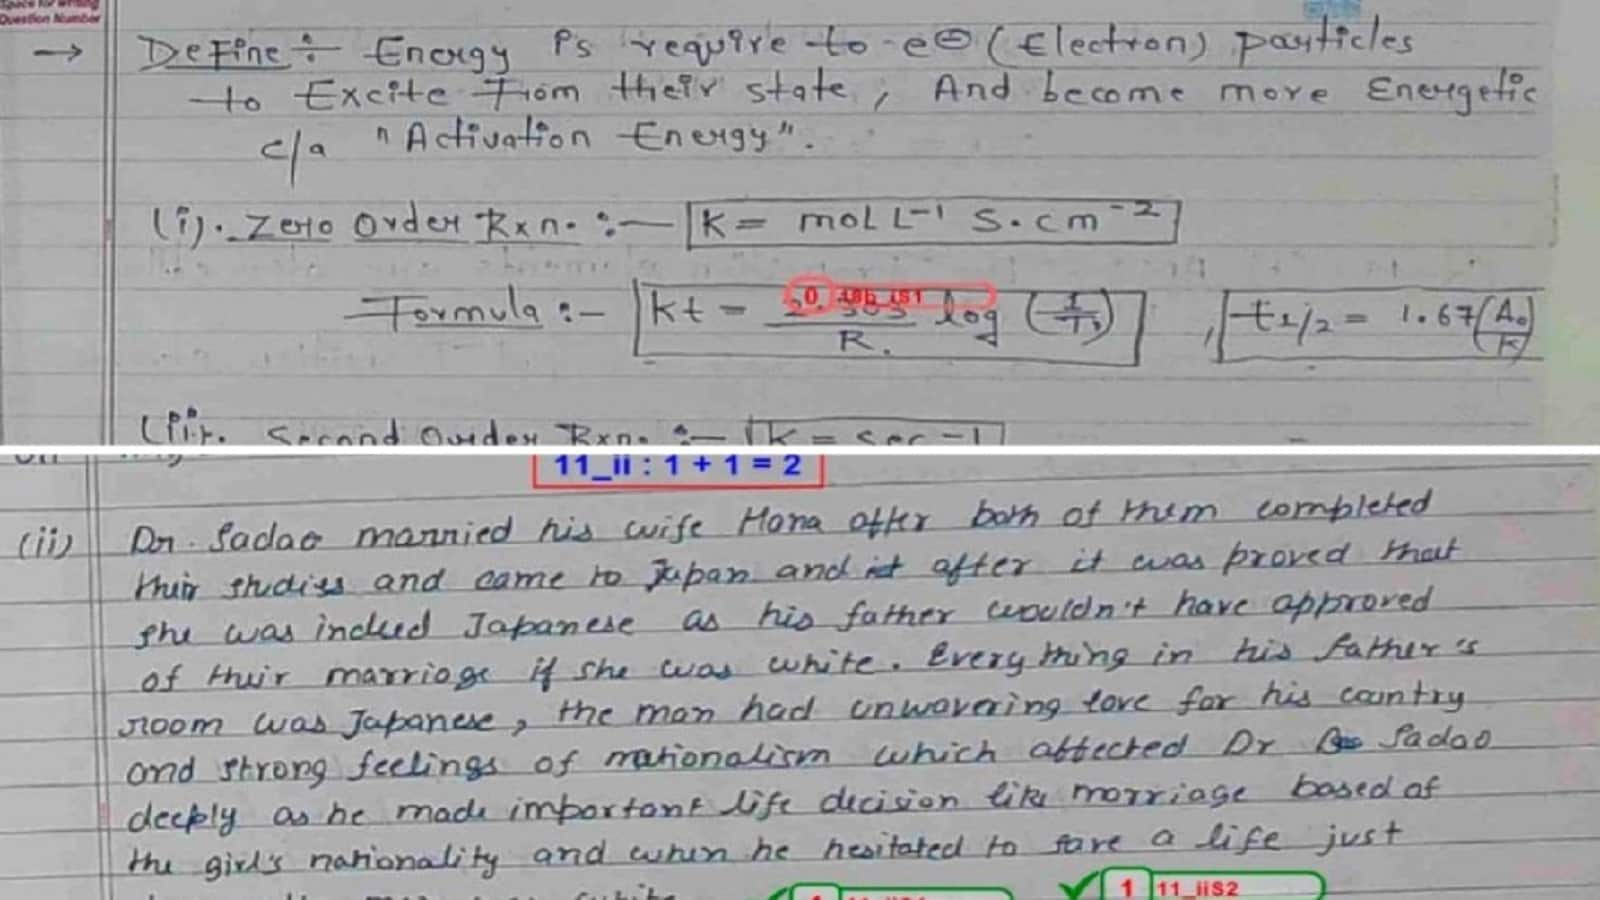 Space for writing
Question Number
→ Define :- Energy is require to e⊖ (Electron) particles
to Excite From their state, And become more Energetic
c/a "Activation Energy".
(i). Zero Order Rxn. :— K = mol L⁻¹ S.cm⁻²
Formula :- Kt = 2.303/R. log , t1/2 = 1.67 (A₀/K)
0
(ii). Second Order Rxn. :— K = sec -1
11_ii : 1 + 1 = 2
(ii) Dr. Sadao married his wife Hana after both of them completed
their studies and came to Japan and after it was proved that
she was indeed Japanese as his father wouldn't have approved
of their marriage if she was white. Everything in his father's
room was Japanese, the man had unwavering love for his country
and strong feelings of nationalism which affected Dr Sadao
deeply as he made important life decision like marriage based of
the girl's nationality and when he hesitated to save a life just
white
1 11_iiS2